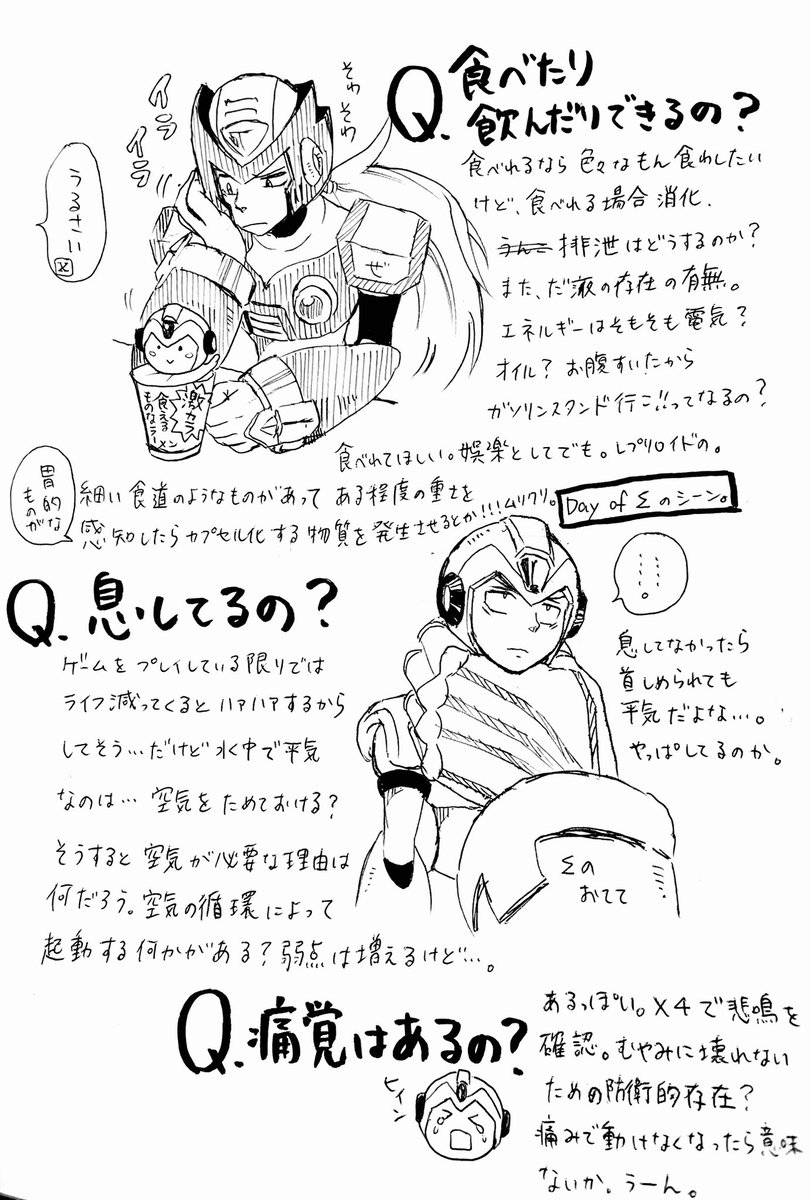 Q.食べたり
飲んだりできるの?
そわそわ
イライラ
うるさい
X
ぜ
激カラ
食えるものならラーメン
食べれるなら色々なもん食わしたい
けど、食べれる場合消化、
うんこ排泄はどうするのか?
また、だ液の存在の有無。
エネルギーはそもそも電気?
オイル?お腹すいたから
ガソリンスタンド行こ!!ってなるの?
食べれてほしい。娯楽としてでも。レプリロイドの。
胃的なものが
細い食道のようなものがあってある程度の重さを
感知したらカプセル化する物質を発生させるとか!!!ムリクリ。
Day of Σのシーン。
Q.息してるの?
ゲームをプレイしている限りでは
ライフ減ってくるとハァハァするから
してそう…だけど水中で平気
なのは…空気をためておける?
そうすると空気が必要な理由は
何だろう。空気の循環によって
起動する何かがある?弱点は増えるけど…。
……。
息してなかったら
首しめられても
平気だよな…。
やっぱしてるのか。
Σの
おてて
Q.痛覚はあるの?
ヒィン
あるっぽい。X4で悲鳴を
確認。むやみに壊れない
ための防衛的存在?
痛みで動けなくなったら意味
ないか。うーん。